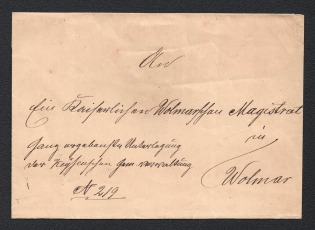 An
Ein Kaiserlichen Wolmarschen Magistrat
in
Wolmar
ganz ergebenste Unterlegung
der Keysenschen Gem. verwaltung
N 219